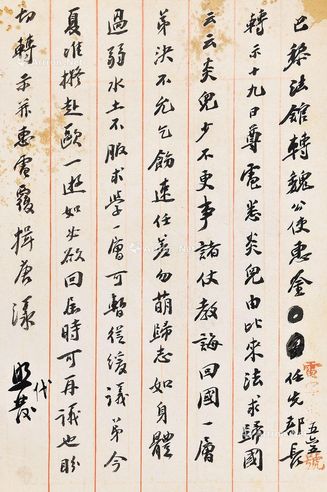 巴黎法館轉魏公使惠鑒任先都長
轉示十九日尊電悉炎兒由比來法求歸國
云云炎兒少不更事諸仗教誨回國一層
弟決不允乞飭速任差勿萌歸志如身體
過弱水土不服求學一層可暫從緩議弟今
夏准擬赴歐一遊如必欲回屆時可再議也盼
切轉示并惠電覆揖唐漾
代